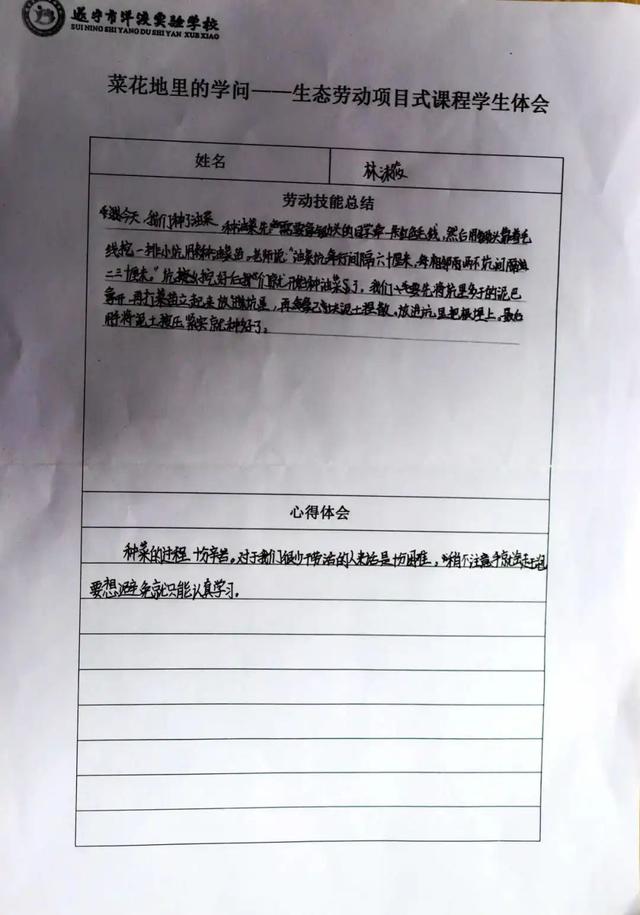 遂宁市洋渡实验学校
SUI NING SHI YANG DU SHI YAN XUE XIAO
菜花地里的学问——生态劳动项目式课程学生体会
姓名
林沫
劳动技能总结
今天,我们种了油菜。种油菜先
线挖一排小坑用来种油菜苗。老师说:“油菜坑每行间隔六十厘米,每相邻两个坑间隔
二三十厘米。”坑挖好后我们就开始种油菜了。我们要先将坑里多于的泥巴
再打菜苗立起来放进坑里,再泥土捏散。放进坑里把根埋上。最后
用脚将泥土压紧实就种好了。
心得体会
种菜的过程十分辛苦。对于我们很少干劳动的人来话是十分困难,稍不注意手就
要想避免就只能认真学习。